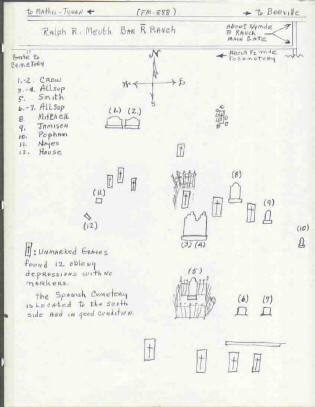 to Mathis - Tynan ← (FM-888) → to Beeville
Ralph R. Meuth Bar R Ranch
About ¼ mile
R Ranch
Main Gate
← About ½ mile
to cemetery
Gate to
Cemetery
N
W
E
S
1.-2. Crow
3.-4. Allsop
5. Smith
6.-7. Allsop
8. Mitchell
9. Jamison
10. Popham
11. Noyes
12. House
(1.) (2.)
(8)
(9)
(11)
(12)
(10)
(3) (4)
: Unmarked Graves
Found 12 oblong
depressions with no
markers.
The Spanish Cemetery
is located to the south
side and in good condition.
(5)
(6) (7)